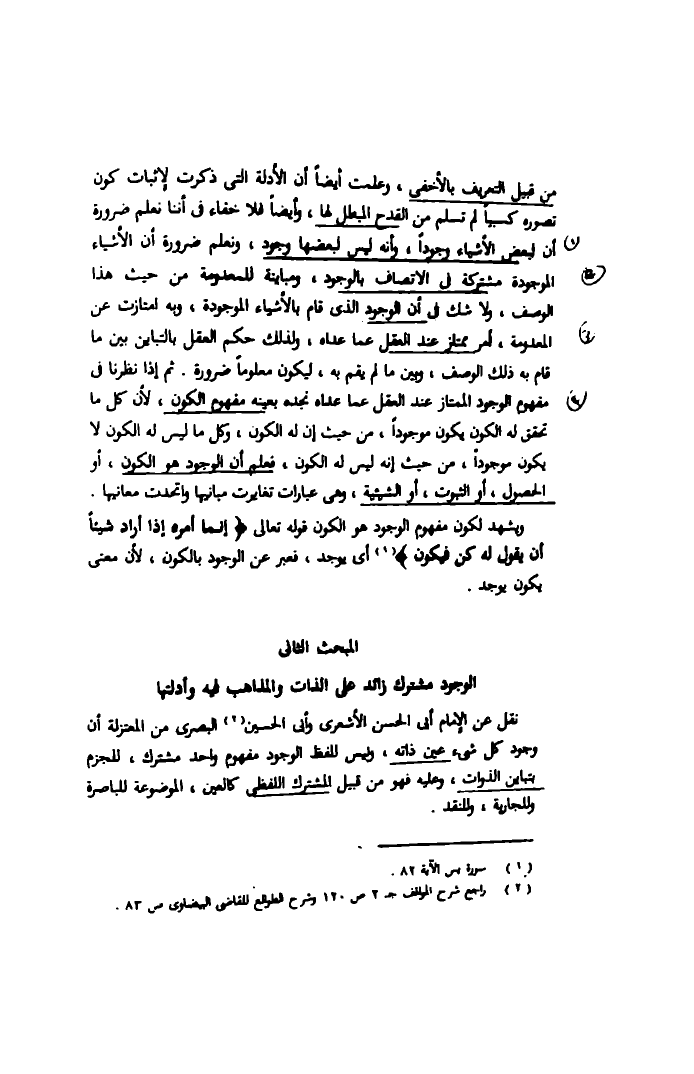 من قبيل التعريف بالأخفى ، وعلمت أيضاً أن الأدلة التى ذكرت لإثبات كون
تصوره كسبياً لم تسلم من القدح المبطل لها ، وأيضاً فلا خفاء فى أننا نعلم ضرورة
أن لبعض الأشياء وجوداً ، وأنه ليس لبعضها وجود ، ونعلم ضرورة أن الأشياء
الموجودة مشتركة فى الاتصاف بالوجود ، ومباينة للمعدومة من حيث هذا
الوصف ، ولا شك فى أن الوجود الذى قام بالأشياء الموجودة ، وبه امتازت عن
المعدومة ، أمر ممتاز عند العقل عما عداه ، ولذلك حكم العقل بالتباين بين ما
قام به ذلك الوصف ، وبين ما لم يقم به ، ليكون معلوماً ضرورة . ثم إذا نظرنا فى
مفهوم الوجود الممتاز عند العقل عما عداه نجده بعينه مفهوم الكون ، لأن كل ما
تحقق له الكون يكون موجوداً ، من حيث إن له الكون ، وكل ما ليس له الكون لا
يكون موجوداً ، من حيث إنه ليس له الكون ، فعلم أن الوجود هو الكون ، أو
الحصول ، أو الثبوت ، أو الشيئية ، وهى عبارات تغايرت مبانيها واتحدت معانيها .
ويشهد لكون مفهوم الوجود هو الكون قوله تعالى ﴿ إنما أمره إذا أراد شيئاً
أن يقول له كن فيكون ﴾(١) أى يوجد ، فعبر عن الوجود بالكون ، لأن معنى
يكون يوجد .
المبحث الثانى
الوجود مشترك زائد على الذات والمذاهب فيه وأدلتها
نقل عن الإمام أبى الحسن الأشعرى وأبى الحسين(٢) البصرى من المعتزلة أن
وجود كل شىء عين ذاته ، وليس للفظ الوجود مفهوم واحد مشترك ، للجزم
بتباين الذوات ، وعليه فهو من قبيل المشترك اللفظى كالعين ، الموضوعة للباصرة
وللجارية ، وللنقد .
(١) سورة يس الآية ٨٢ .
(٢) راجع شرح المواقف جـ ٢ ص ١٢٠ وشرح الطوالع للقاضى البيضاوى ص ٨٣ .